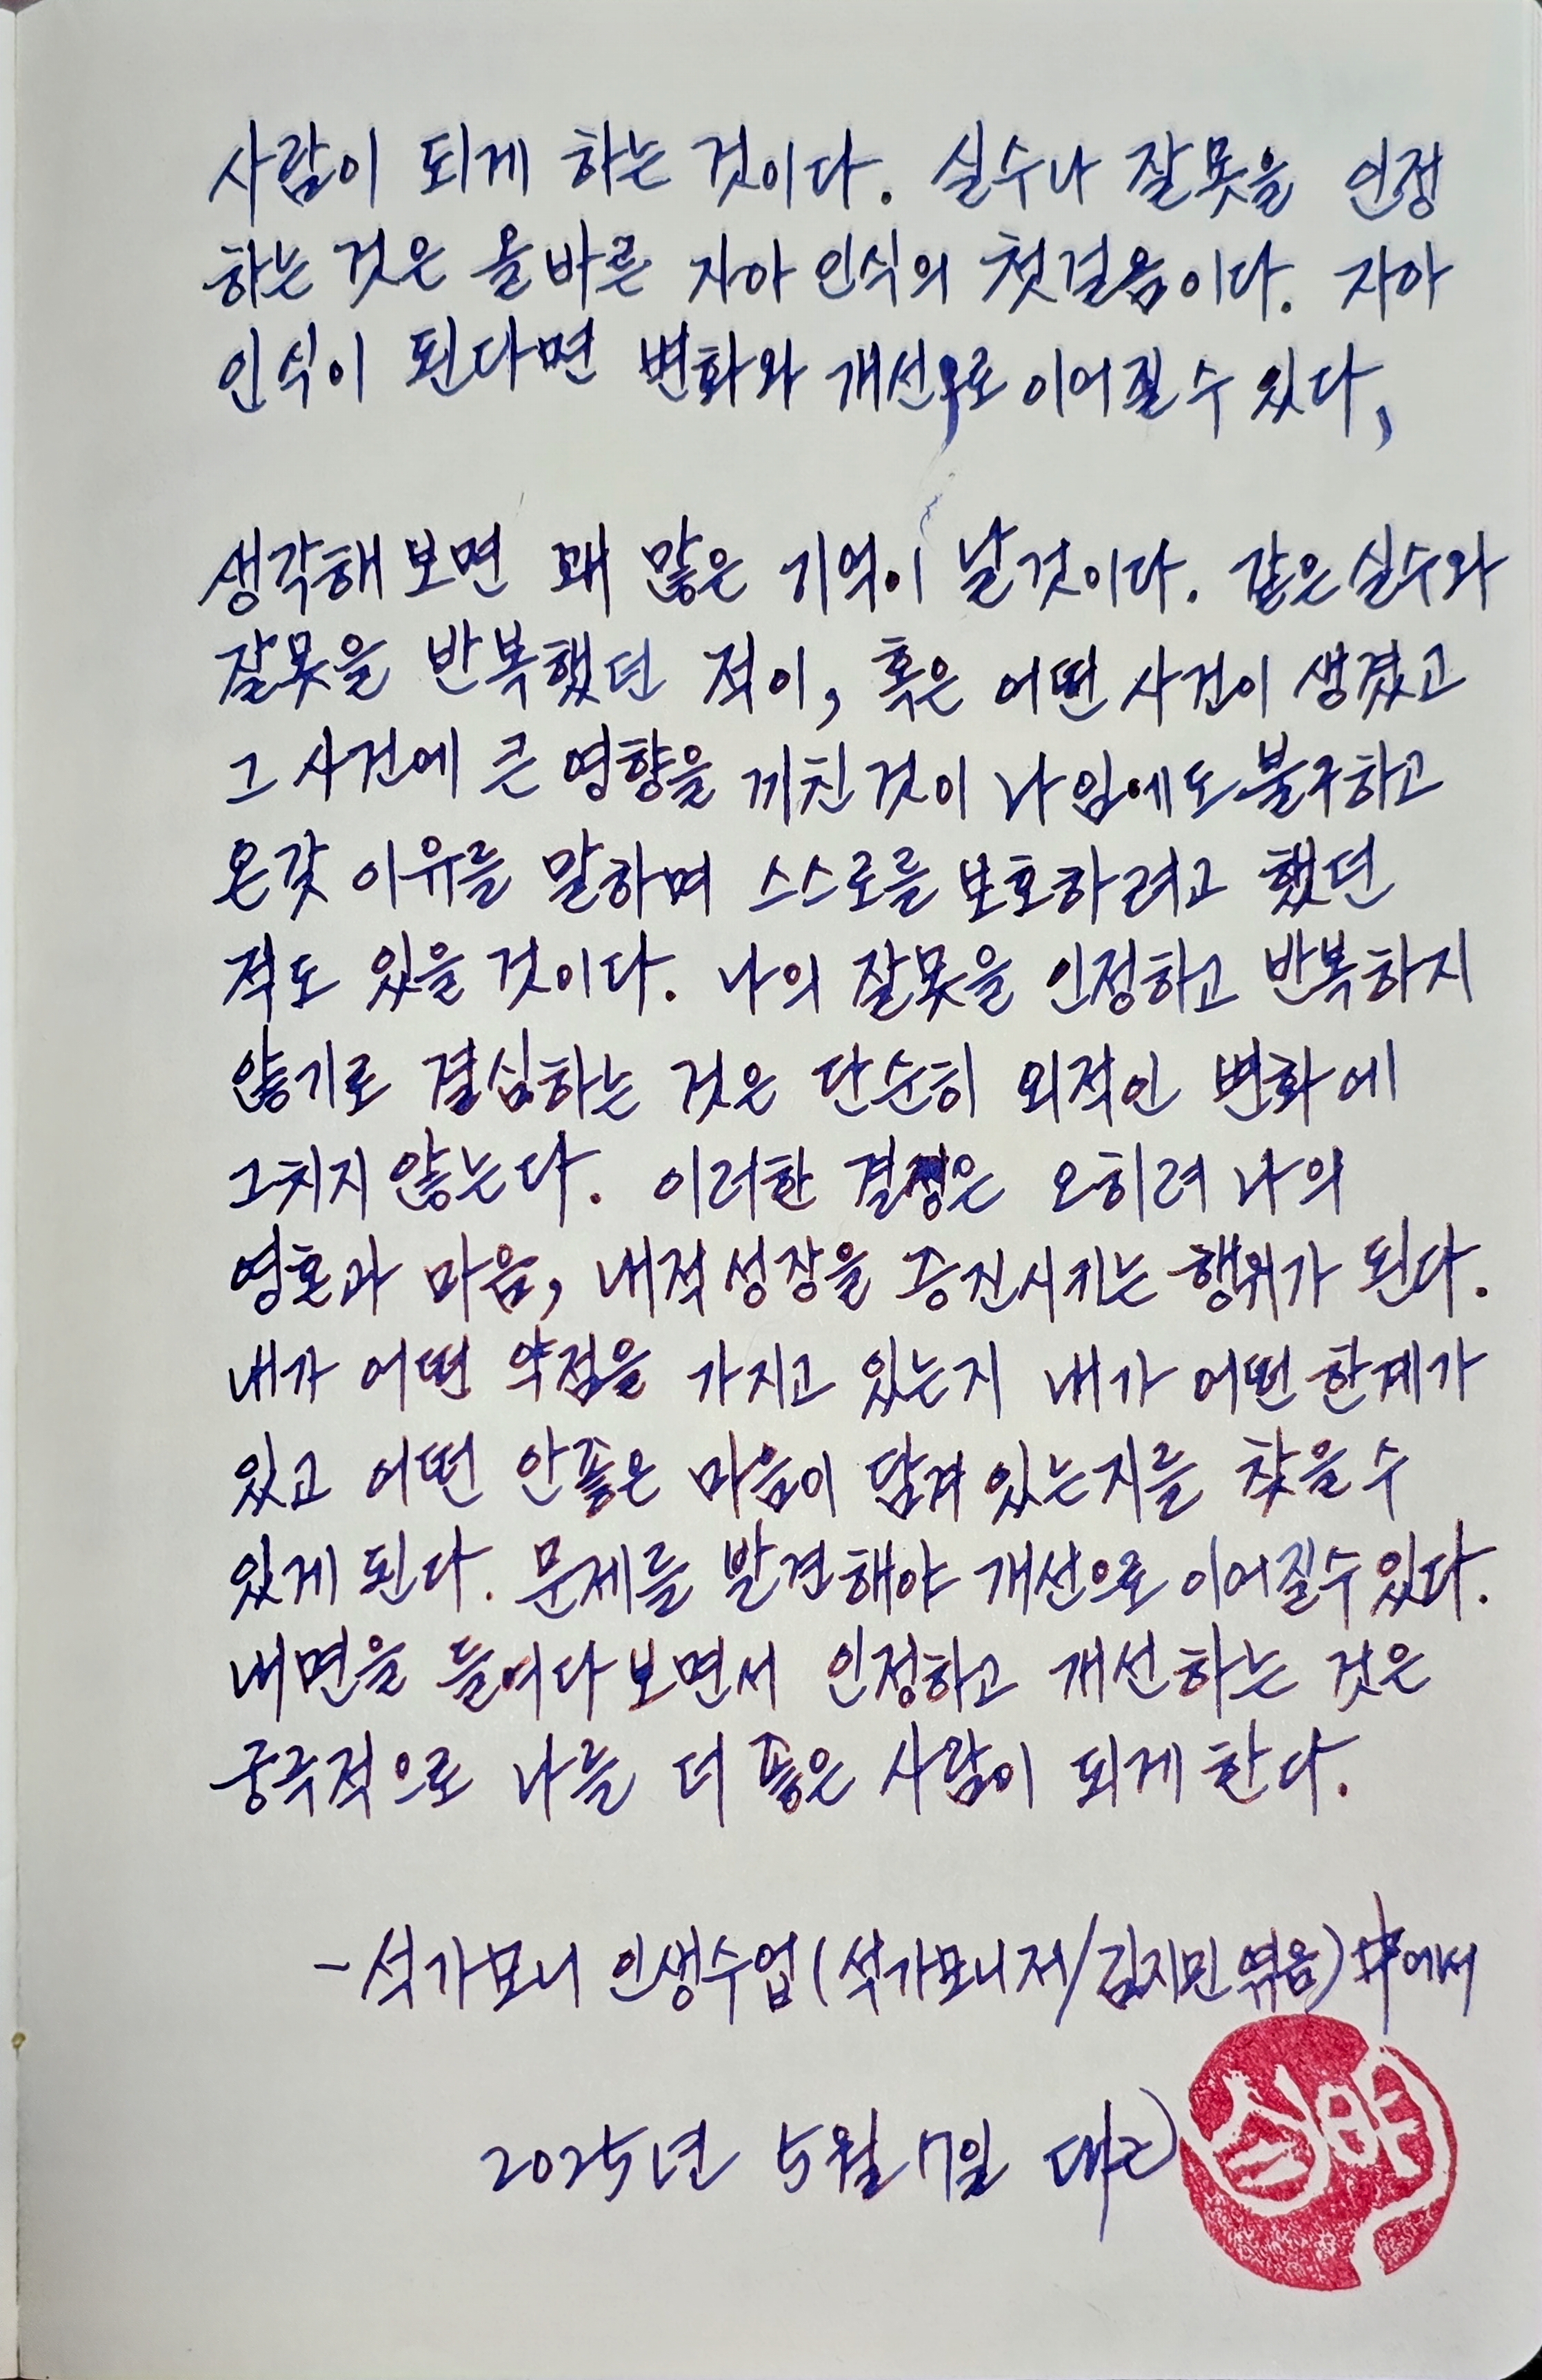 사람이 되게 하는 것이다. 실수나 잘못을 인정
하는 것은 올바른 자아 인식의 첫걸음이다. 자아
인식이 된다면 변화와 개선으로 이어질 수 있다,
생각해보면 꽤 많은 기억이 날것이다. 같은 실수와
잘못을 반복했던 적이, 혹은 어떤 사건이 생겼고
그 사건에 큰 영향을 끼친 것이 나임에도 불구하고
온갖 이유를 말하며 스스로를 보호하려고 했던
적도 있을 것이다. 나의 잘못을 인정하고 반복하지
않기로 결심하는 것은 단순히 외적인 변화에
그치지 않는다. 이러한 결정은 오히려 나의
영혼과 마음, 내적 성장을 증진시키는 행위가 된다.
내가 어떤 약점을 가지고 있는지 내가 어떤 한계가
있고 어떤 안좋은 마음이 담겨 있는지를 찾을 수
있게 된다. 문제를 발견해야 개선으로 이어질수 있다.
내면을 들여다보면서 인정하고 개선하는 것은
궁극적으로 나를 더 좋은 사람이 되게 한다.
-석가모니 인생수업(석가모니저/김지민 엮음)中에서
2025년 5월 7일